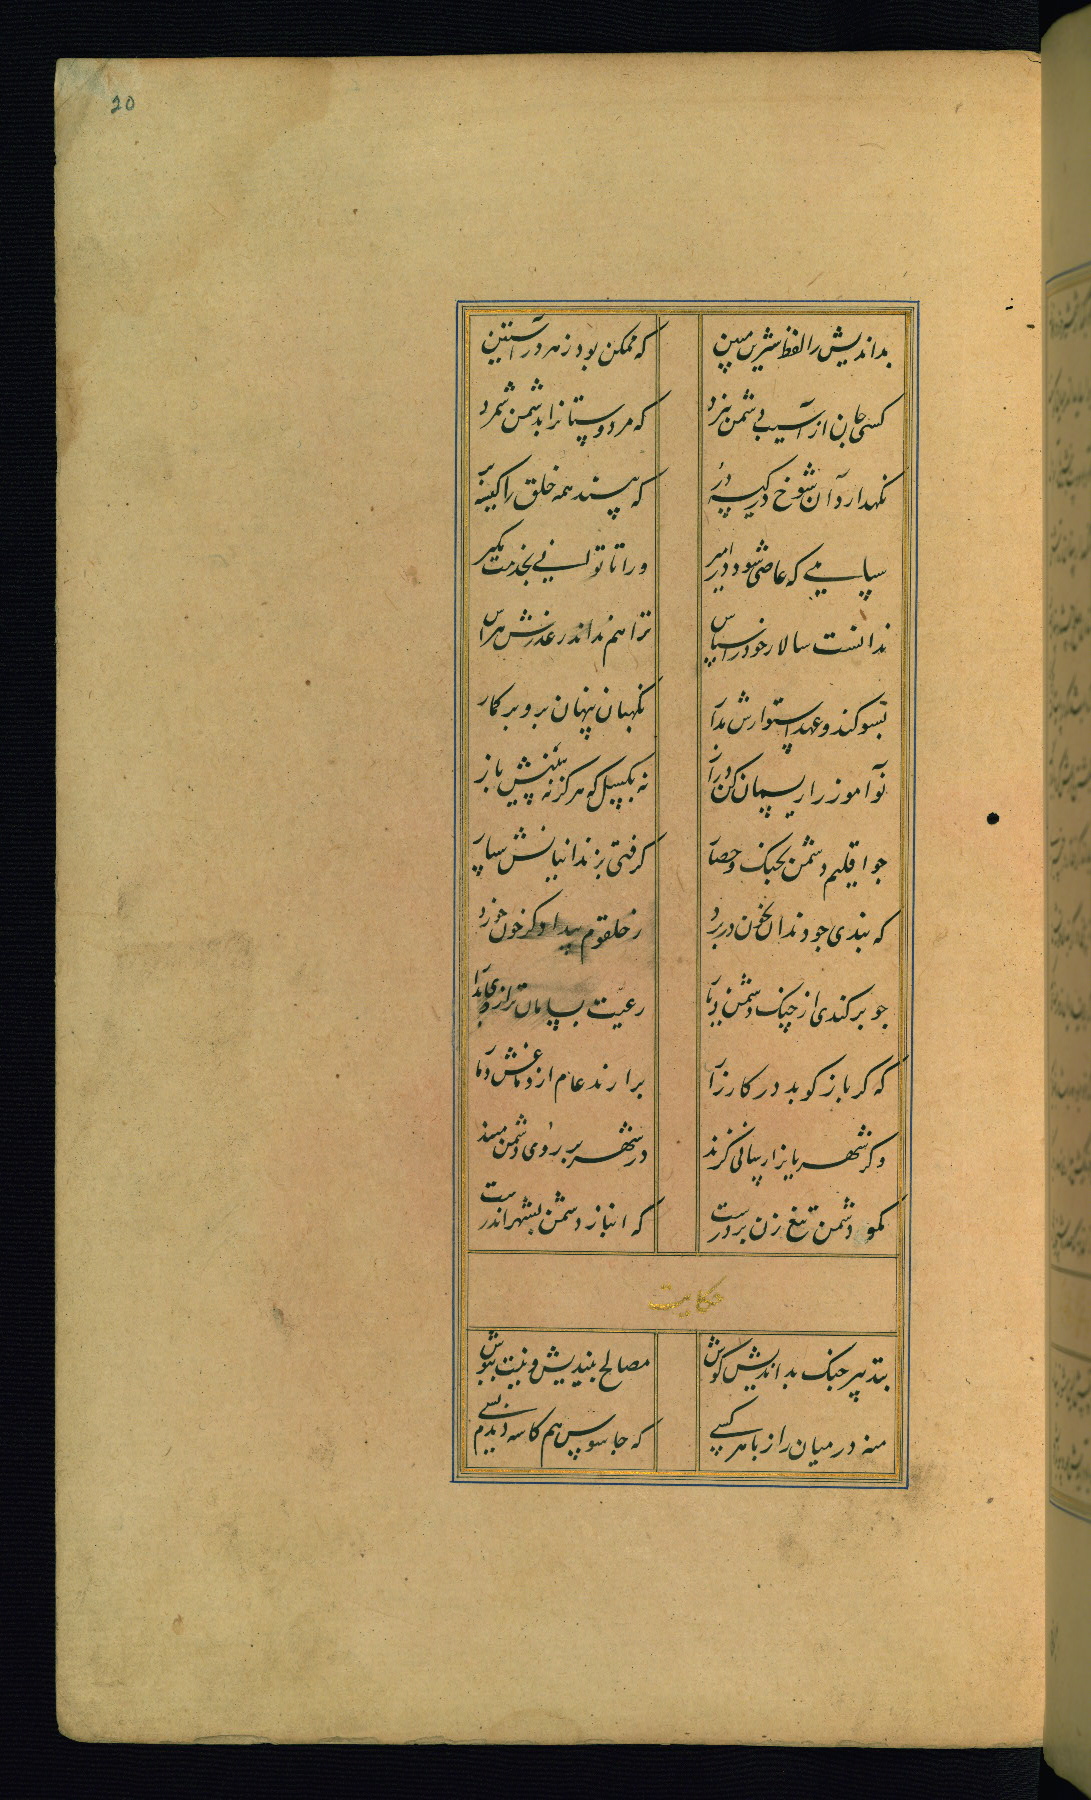 20
بداندیش را لفظ شیرین مبین که ممکن بود زهر در آستین
کسی جان از آسیب دشمن ببرد که مر دوستانرا بدشمن شمرد
نگهدارد آن شوخ در کیسه در که بیند همه خلق را کیسه بر
سپاهیی که عاصی شود در امیر ورا تا توانی بخدمت مگیر
ندانست سالار خود را سپاس ترا هم نداند ز عذرش هراس
بسوکند و عهد استوارش مدار نگهبان پنهان برو بر کمار
نوآموز را ریسمان کن دراز نه بکسل که هرکز نه بینیش باز
جو اقلیم دشمن بجنک و حصار کرفتی بزندانیانش سپار
که بندی جو دندان بخون در برد ز حلقوم بیدادکر خون خورد
جو برکندی از جنک دشمن دیار رعیت بسامان تر از وی بدار
که کر باز کوبد در کارزار برارند عام از دماغش دمار
وکر شهریانرا رسانی کزند در شهر بر روی دشمن مبند
مکو دشمن تیغ زن بر درست که انباز دشمن بشهر اندرست
حکایت
بتدبیر جنک بداندیش کوش مصالح بیندیش و نیت بپوش
منه در میان راز با هر کسی که جاسوس هم کاسه دیدم بسی